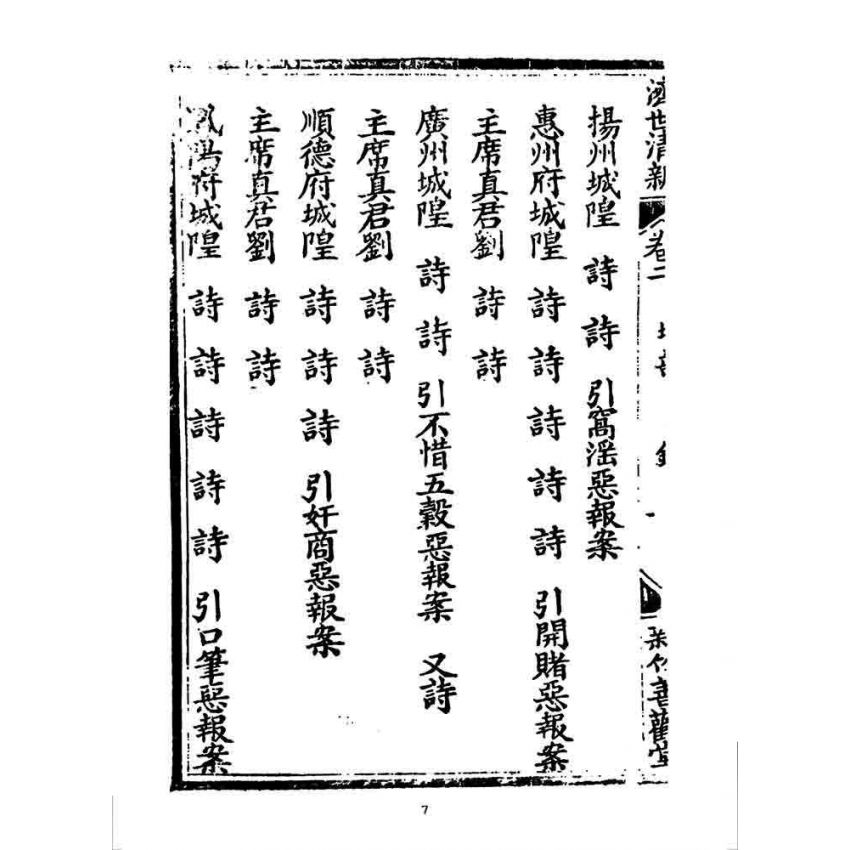 濟世清新 卷二 善 錄 一 善勸堂
揚州城隍 詩 詩 引窩滛惡報案
惠州府城隍 詩 詩 詩 詩 詩 引開賭惡報案
主席真君劉 詩 詩
廣州城隍 詩 詩 引不惜五穀惡報案 又詩
主席真君劉 詩 詩
順德府城隍 詩 詩 詩 引奸商惡報案
主席真君劉 詩 詩
鳳陽府城隍 詩 詩 詩 詩 詩 引口筆惡報案
7